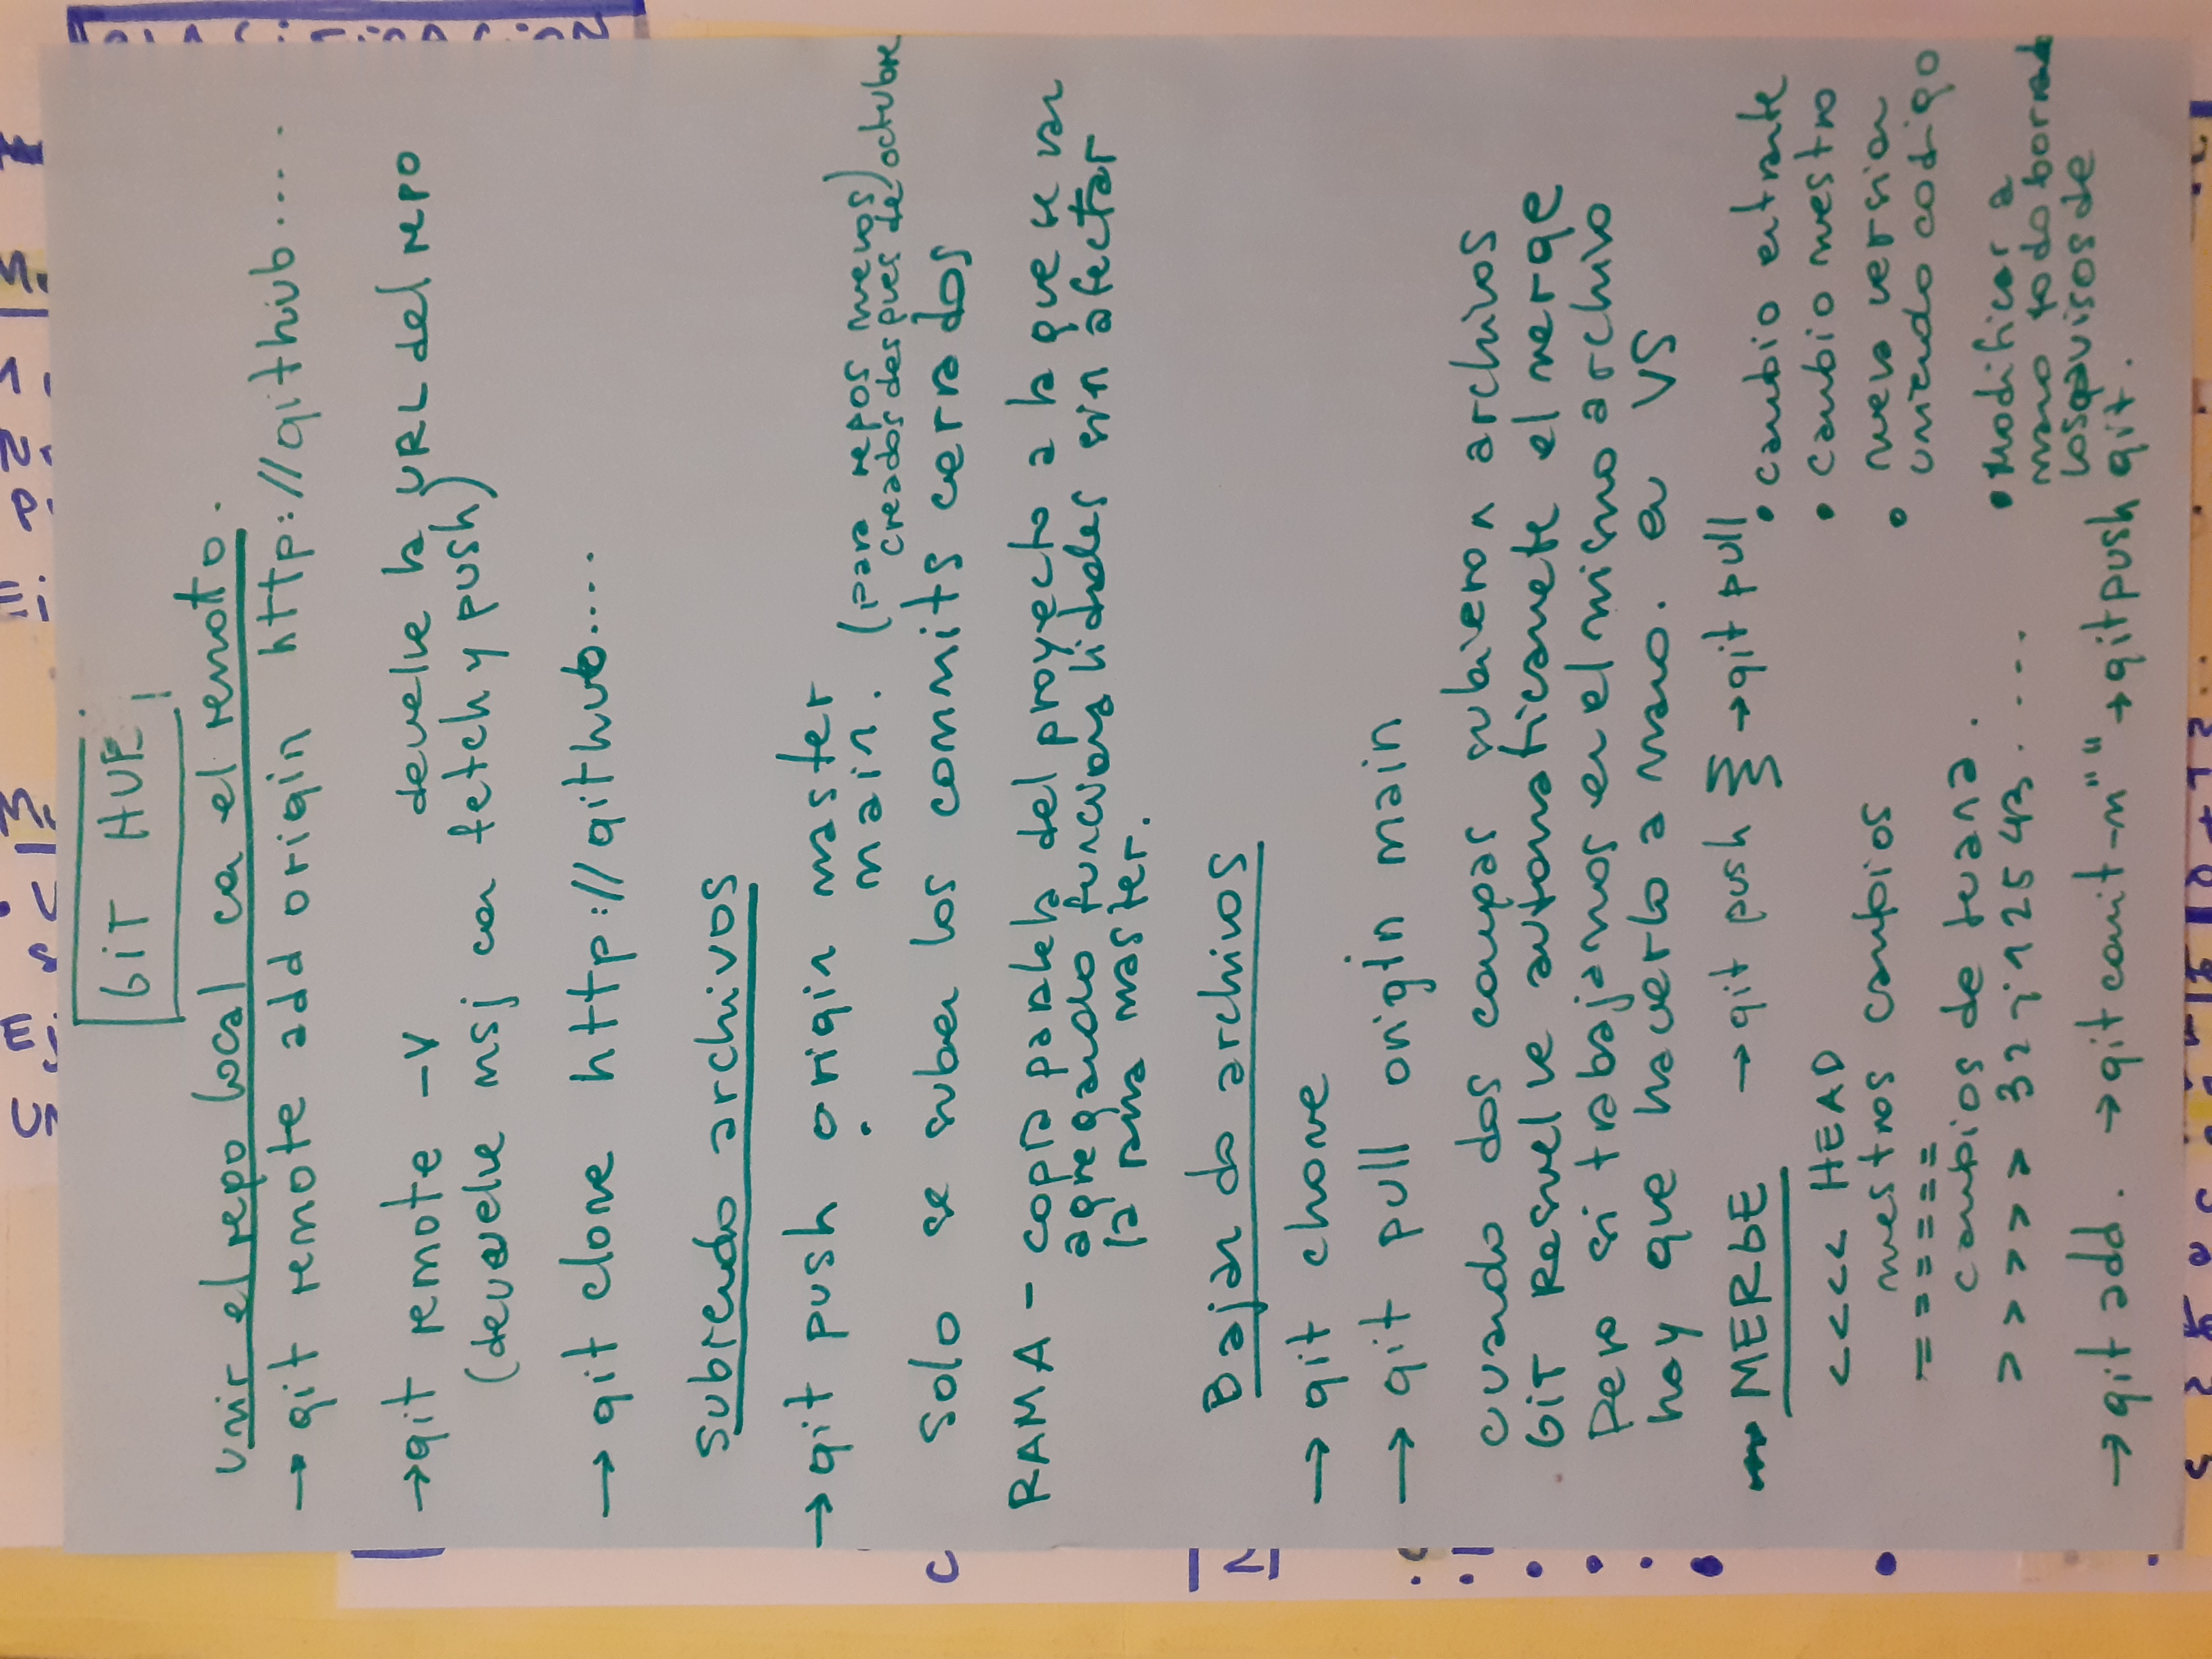 GIT HUB
unir el repo local con el remoto.
→ git remote add origin http://github.....
→ git remote -v devuelve la URL del repo
(devuelve msj con fetch y push)
→ git clone http://github....
subiendo archivos
→ git push origin master
main. (para repos nuevos)
creados despues de octubre
solo se suben los commits cerrados
RAMA - copia paralela del proyecto a la que se van
agregando funcionalidades sin afectar
la rama master.
Bajando archivos
→ git clone
→ git pull origin main
cuando dos compas subieron archivos
GIT Resuelve automaticamete el merge
Pero si trabajamos en el mismo archivo
hay que hacerlo a mano. en VS
MERGE → git push → git pull
<<<< HEAD
nuestros cambios
======
cambios de
>>>>> 32j12543.....
• cambio entrante
• cambio nuestro
• nueva version
uniendo codigo
• Modificar a
mano todo
los avisos de
git.
→ git add . → git comit -m" " → git push